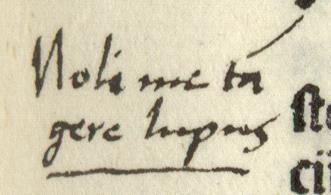 Noli me tā
gere lupus
ſte
cij